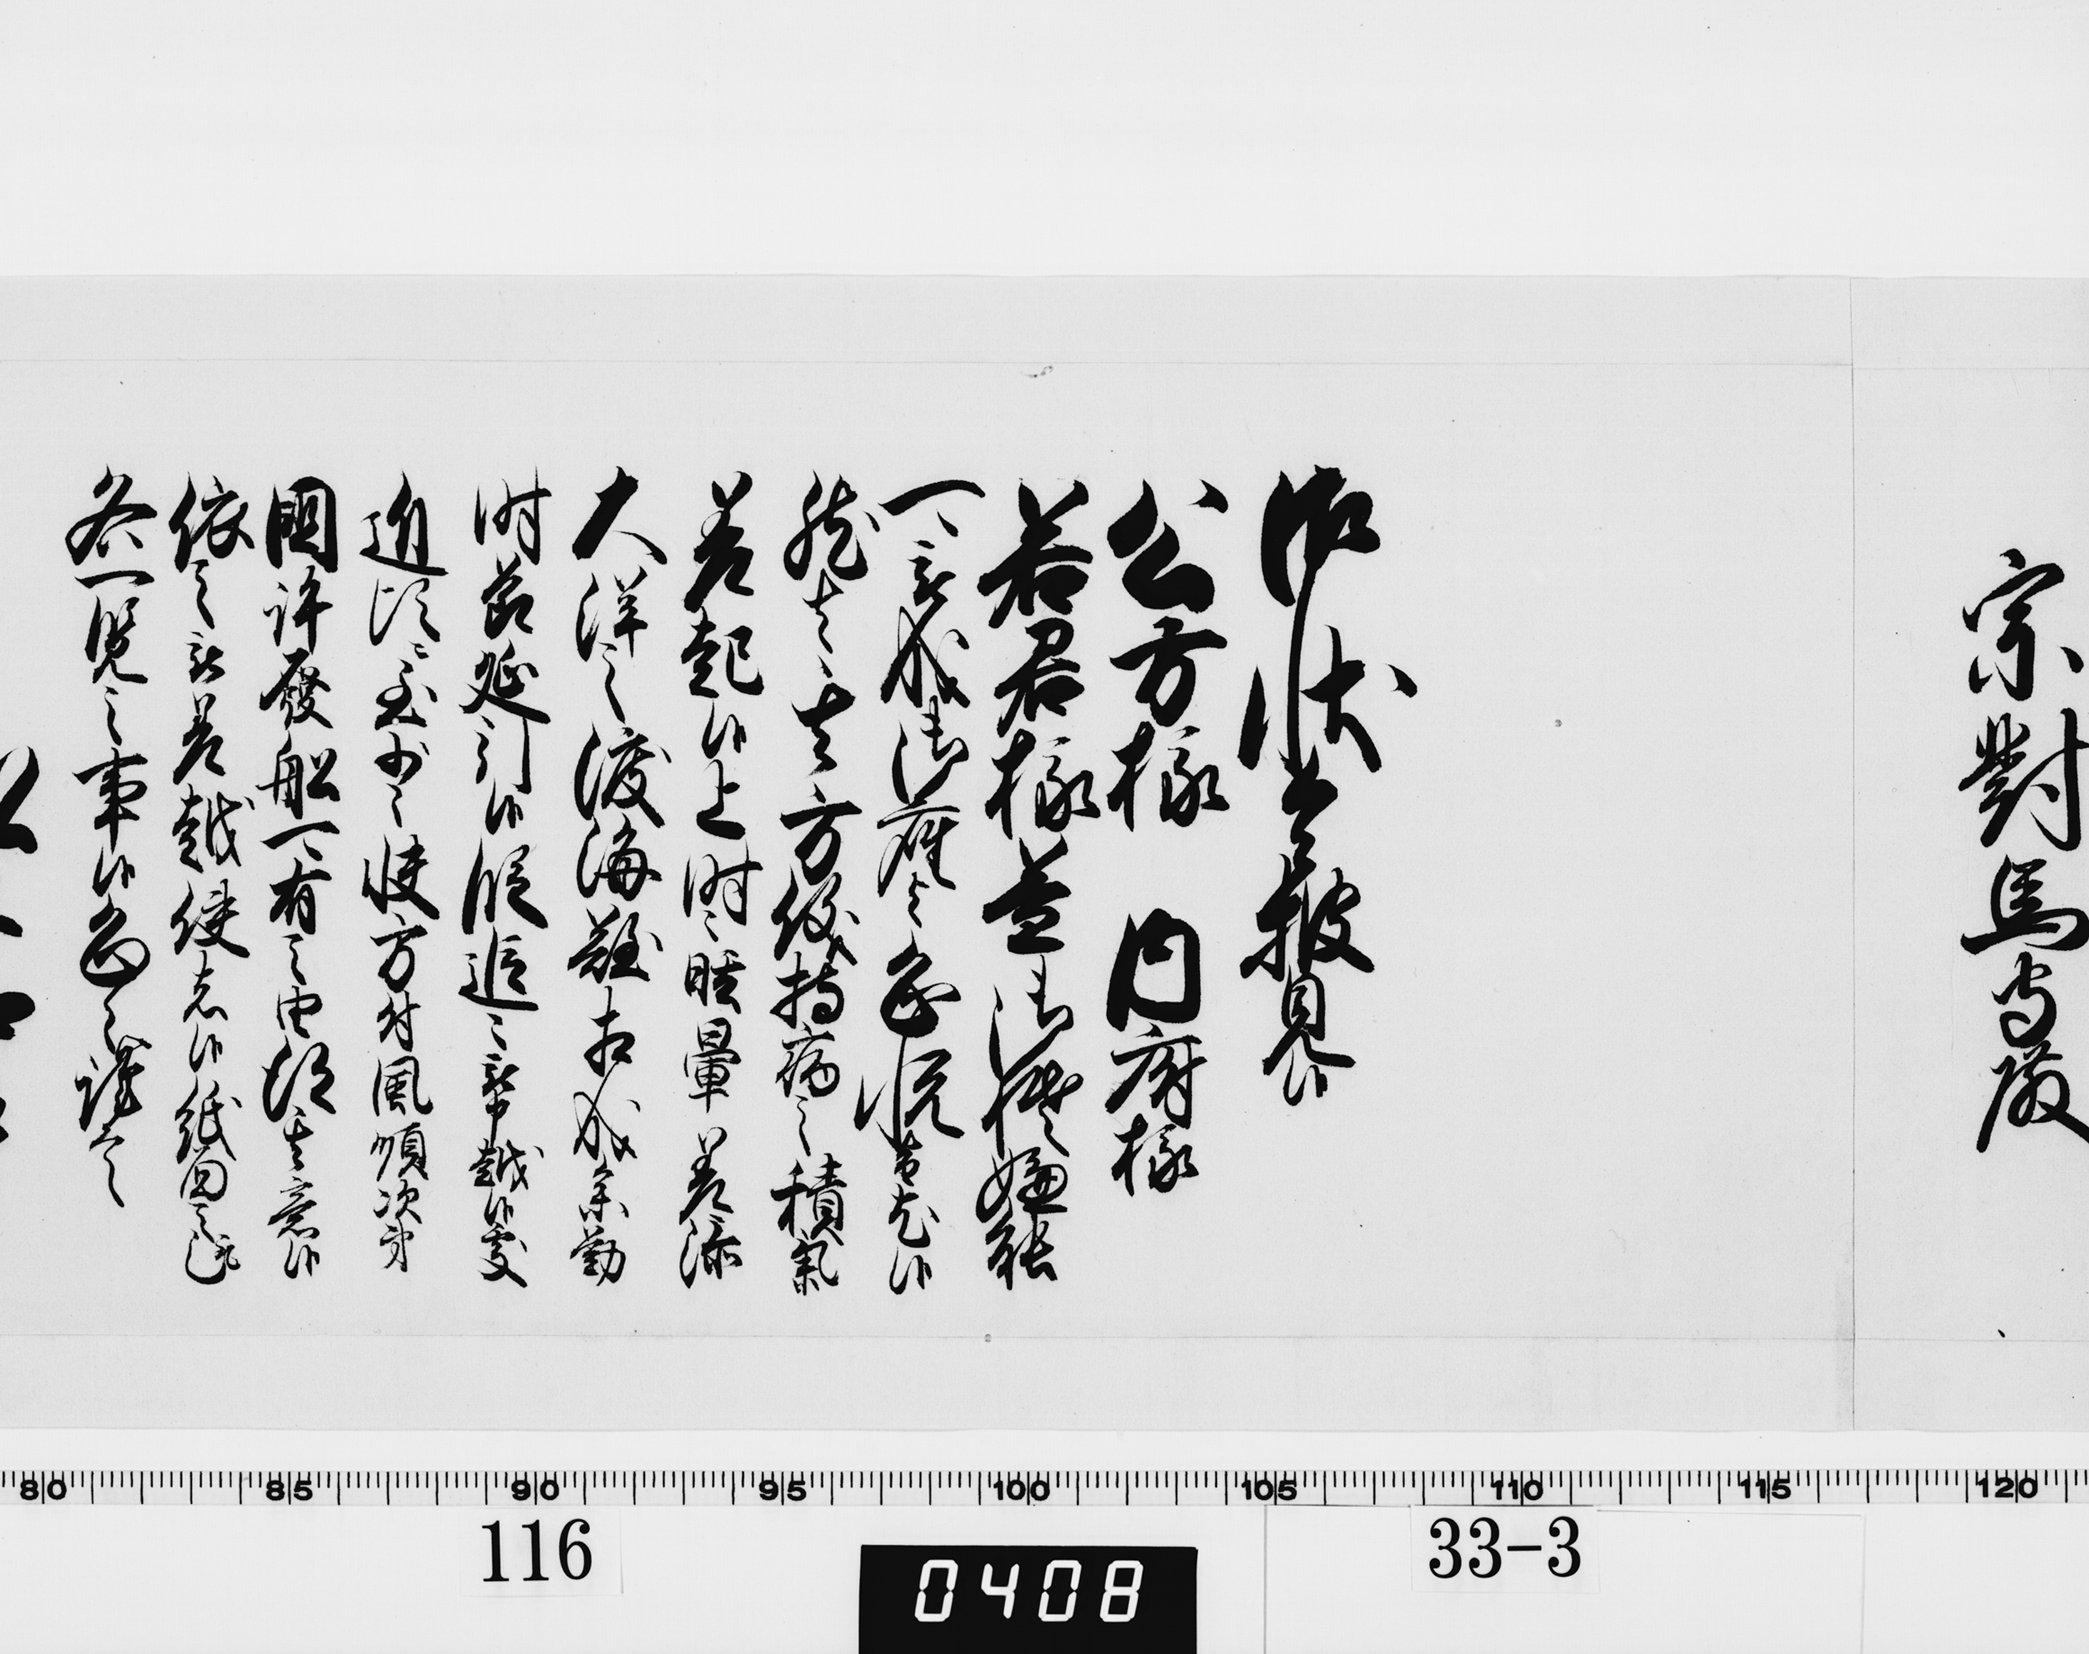 宗對馬守殿
御状令披見候
公方様 内府様
若君様益御機嫌能
可被成御座と恐悦旨尤候
然者其方儀持病之積氣
差起候上時々眩暈差添
大洋之渡海難相成参勤
時節延引候段追々被申越候處
近頃ニ至少々快方付風順次第
國許發船可有之由得其意候
依之被差越使者候紙面之趣
各一覧之事候恐々謹言
80 85 90 95 100 105 110 115 120
116
0408
33-3